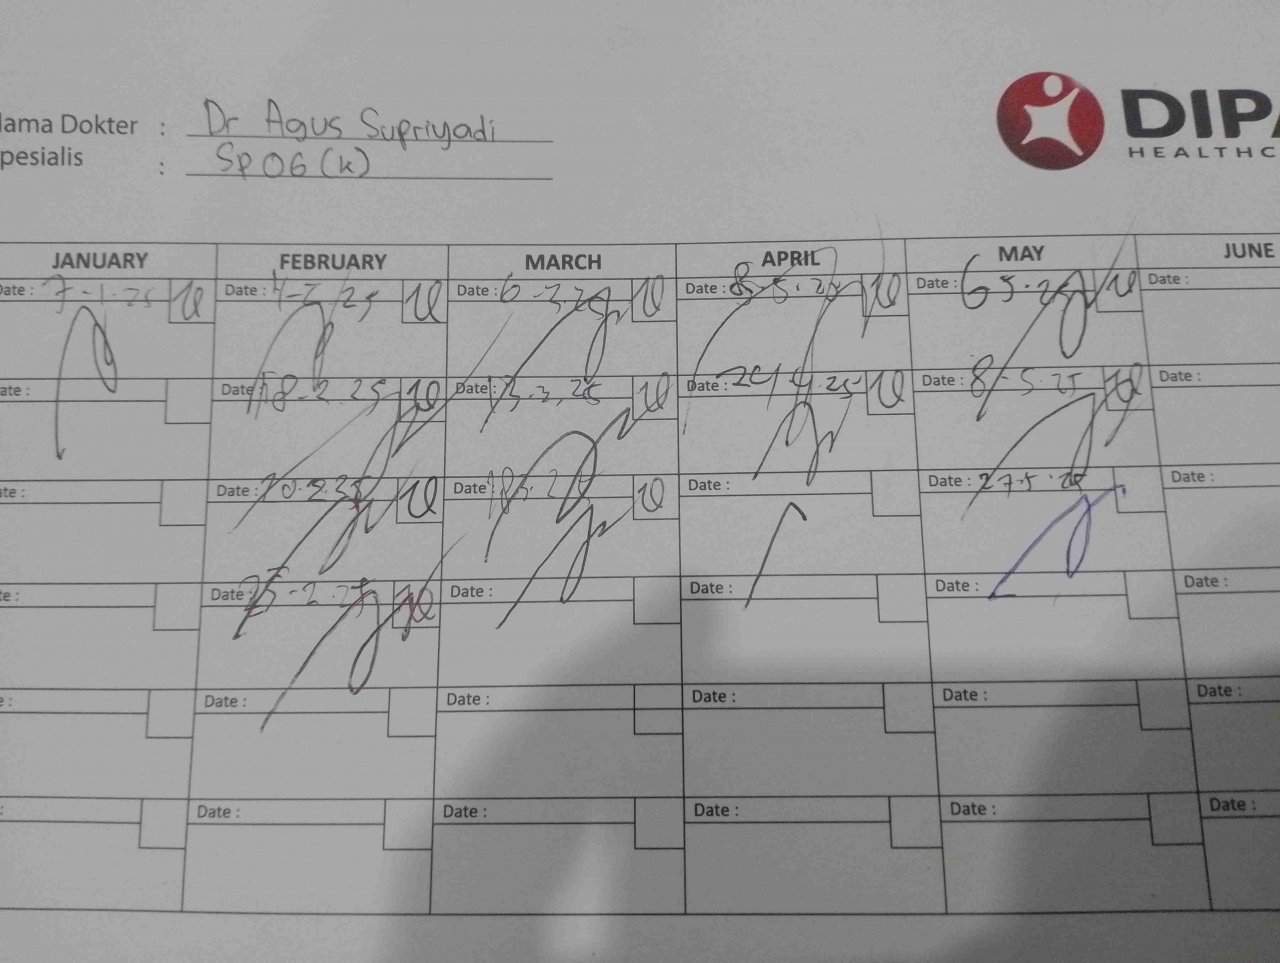 lama Dokter : Dr Agus Supriyadi
pesialis : Sp OG (K)
DIPA
HEALTHC
JANUARY FEBRUARY MARCH APRIL MAY JUNE
Date : 7-1-25 Date : 4-2-25 Date : 6-3.25 Date : 8-5.25 Date : 6 5.25 Date :
ate : Date 18-2.25 Date: 13-3.25 Date : 24 4.25 Date : 8-5.25 Date :
te : Date : 20.2.25 Date Date : Date : 27-5.25 Date :
e : Date 25-2.25 Date : Date : Date : Date :
e : Date : Date : Date : Date : Date :
: Date : Date : Date : Date : Date :